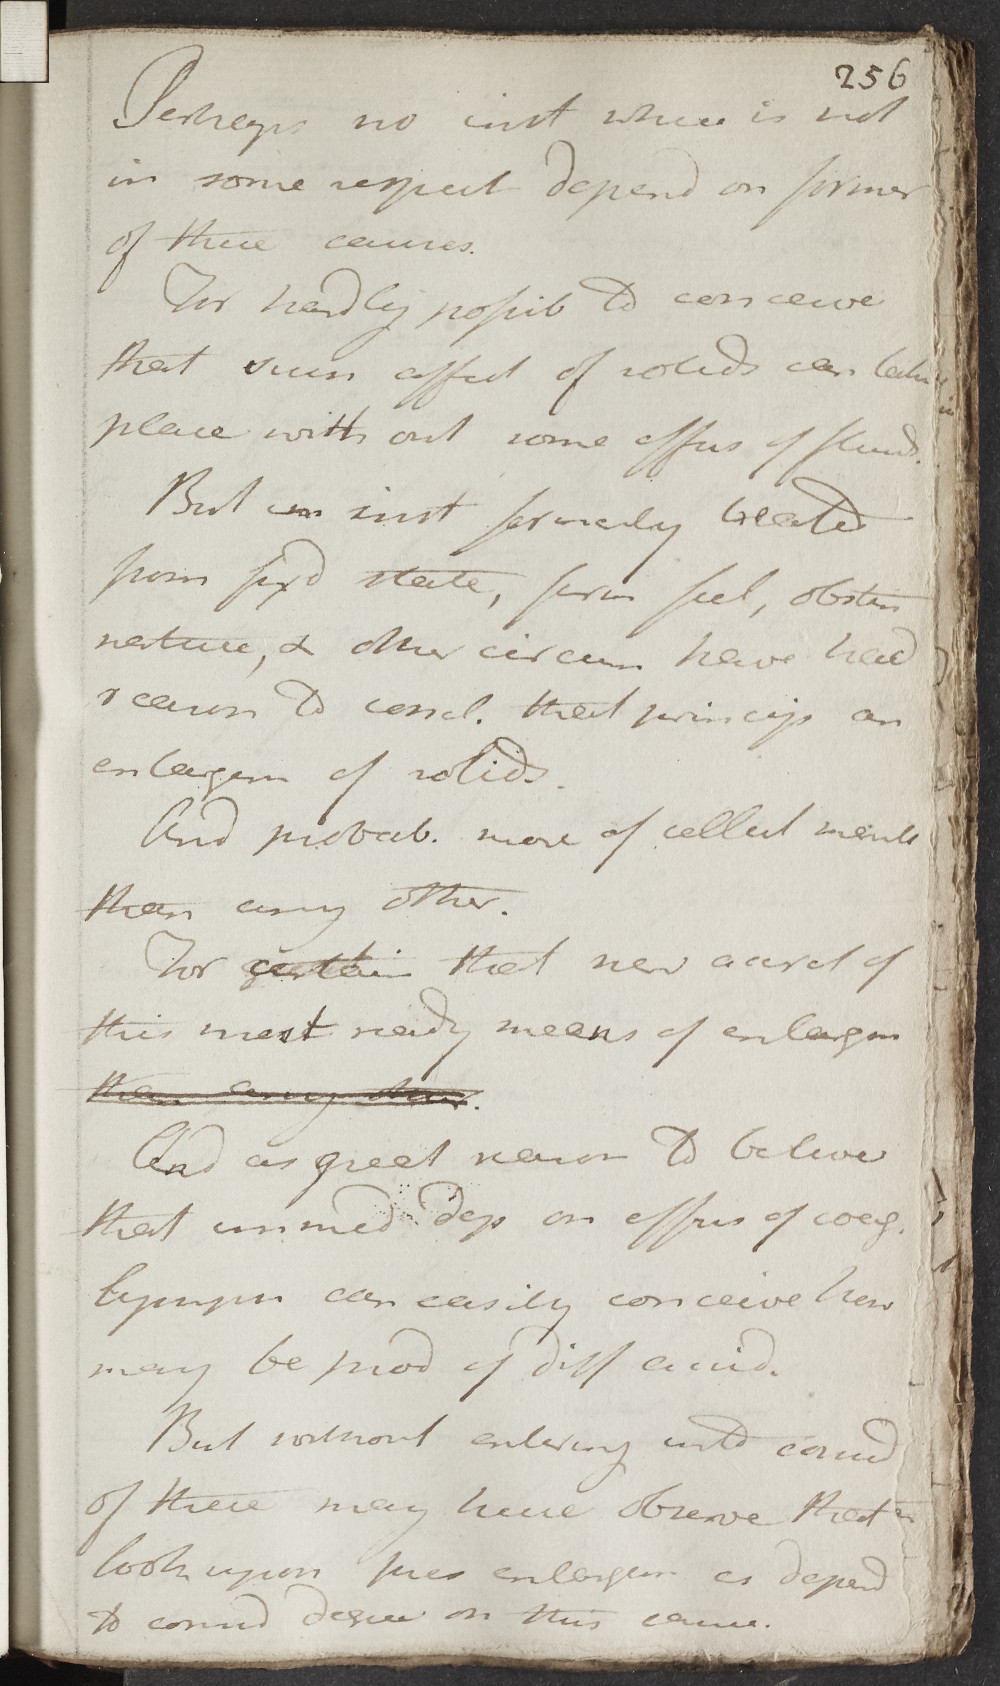 256
Perhaps no inst where is not
in some respect depend on former
of these causes.
For hardly possib to conceive
that even affect of solids can take
place with out some effus of fluids.
But in inst formerly treated
from fix'd state, firm feel, obstin
nature, & other circum have had
reason to concl. that princip an
enlargem of solids.
And probab. more of cellul memb
than any other.
For certain that new accret of
this most ready means of enlargem
than any other.
And as great reason to believe
that immed dep on effus of coag.
lymph can easily conceive how
may be prod of diff acid.
But without entering into consid
of these may here observe that
look upon pres enlargem as depend
to consid degree on this cause.